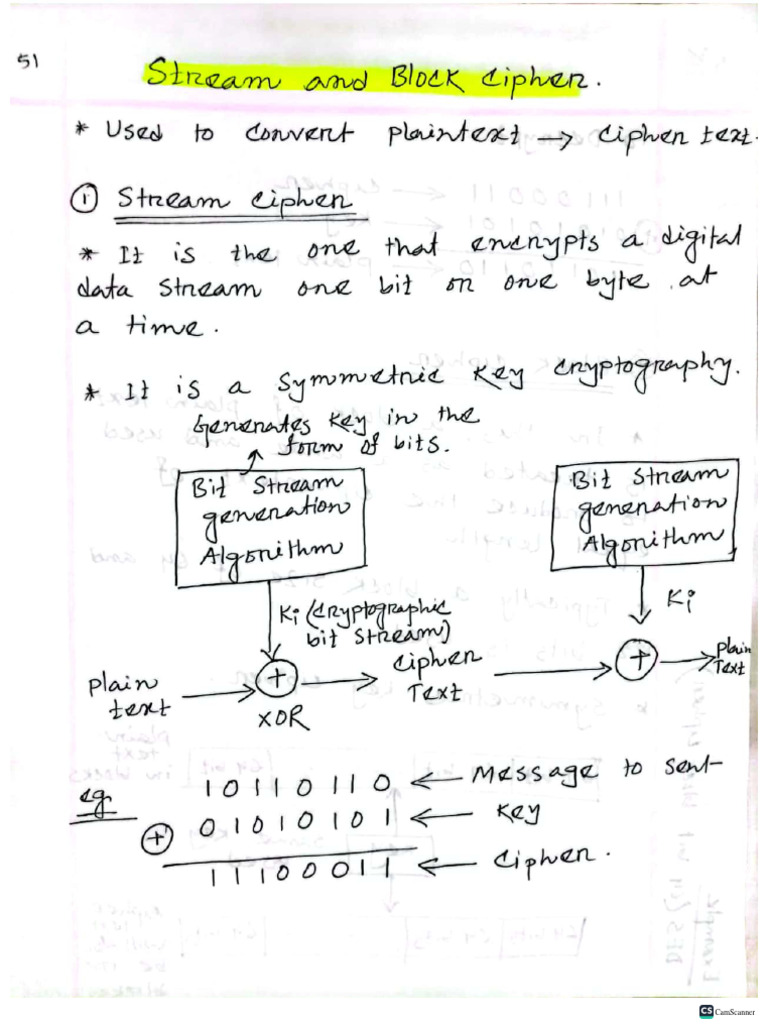 51
Stream and Block Cipher.
* Used to convert plaintext → cipher text.
① Stream cipher
* It is the one that encrypts a digital
data stream one bit or one byte at
a time.
* It is a symmetric key cryptography.
Generates key in the
form of bits.
Bit Stream
generation
Algorithm
Bit Stream
generation
Algorithm
Ki (cryptographic
bit stream)
Ki
Plain
text
+
XOR
Cipher
Text
+
Plain
Text
eg
10110110 ← Message to sent
+ 01010101 ← Key
11100011 ← Cipher.
CS CamScanner